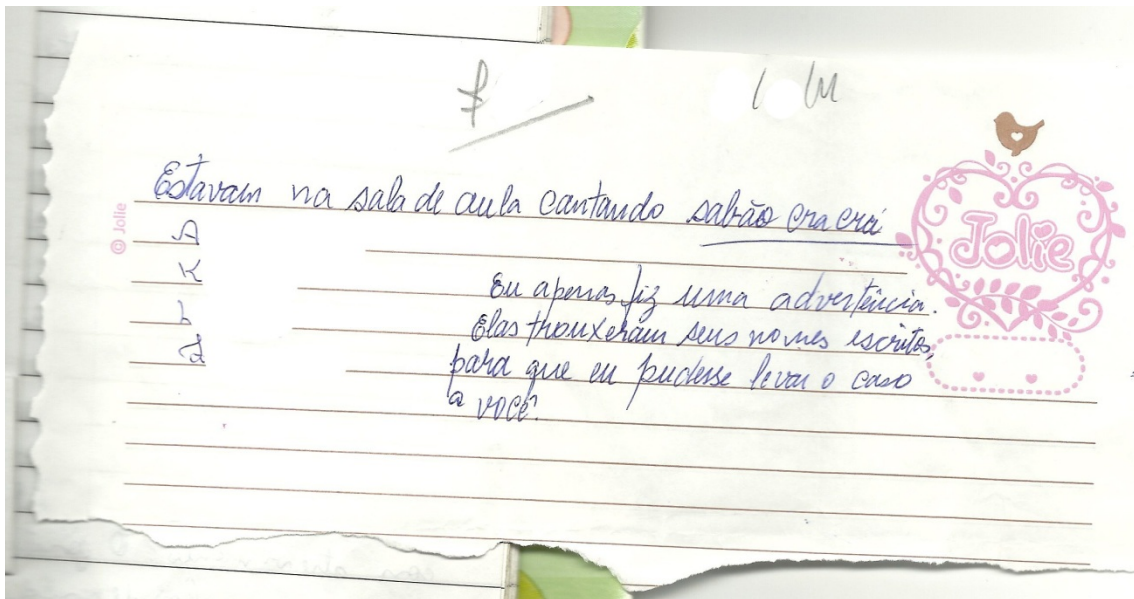 Estavam na sala de aula cantando sabão cra crá
© Jolie
Jolie
A
K
L
Eu apenas fiz uma advertência.
Elas trouxeram seus nomes escritos,
para que eu pudesse levar o caso
a você.